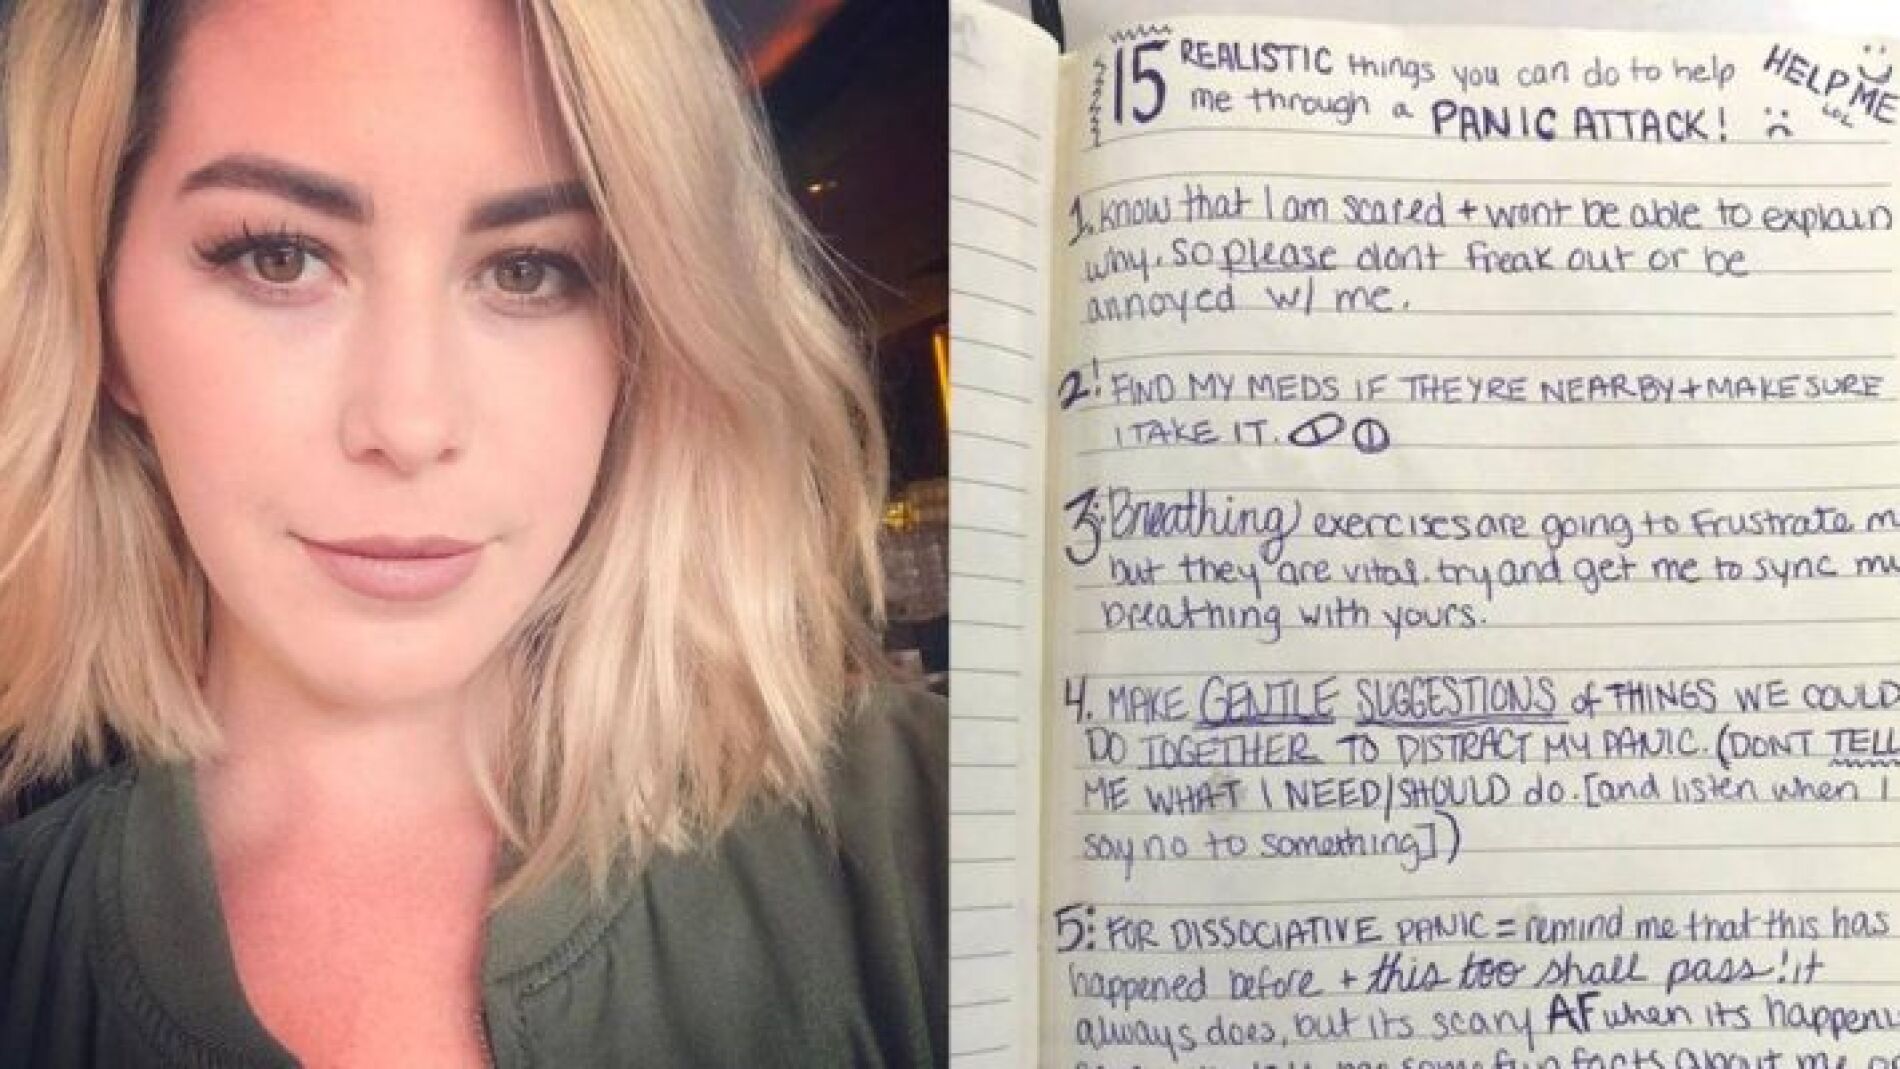 15 REALISTIC things you can do to help
me through a PANIC ATTACK!
HELP ME
LOL
1. Know that I am scared + wont be able to explain
why. so please dont freak out or be
annoyed w/ me.
2! FIND MY MEDS IF THEYRE NEARBY + MAKE SURE
I TAKE IT.
3: Breathing exercises are going to frustrate m
but they are vital. try and get me to sync my
breathing with yours.
4. MAKE GENTLE SUGGESTIONS of THINGS WE COULD
DO TOGETHER TO DISTRACT MY PANIC. (DONT TELL
ME WHAT I NEED/SHOULD do. [and listen when I
say no to something])
5: FOR DISSOCIATIVE PANIC = remind me that this has
happened before + this too shall pass! it
always does, but its scary AF when its happeni
some fun facts about me